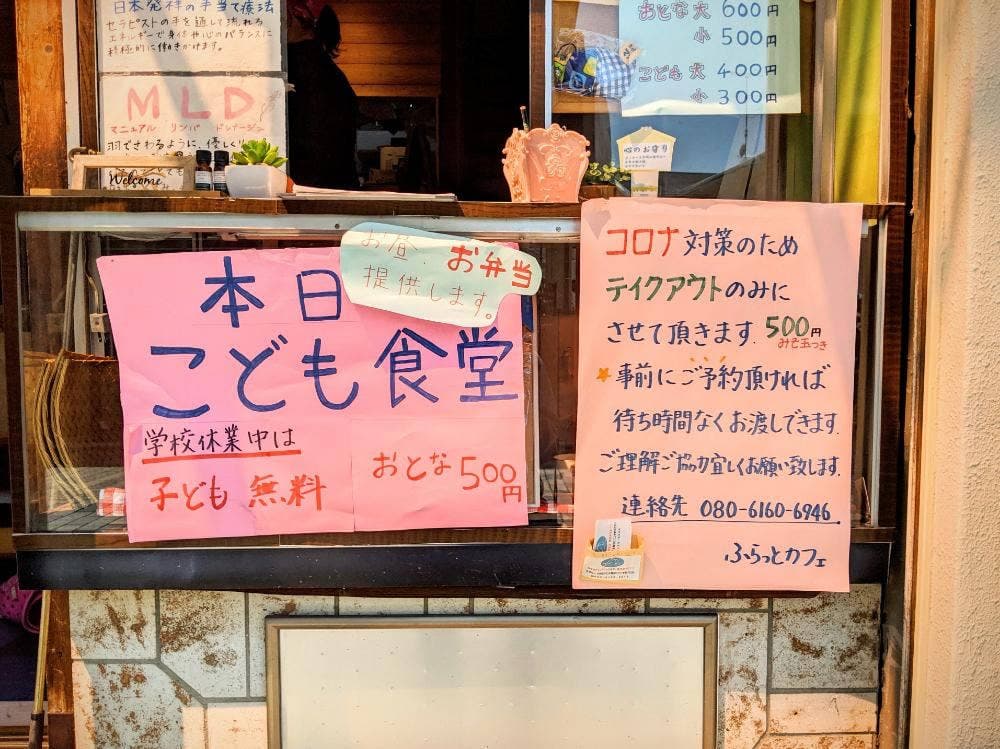 日本発祥の手当て療法
セラピストの手を通して流れる
エネルギーで身体や心のバランスに
MLD
マニュアル リンパ ドレナージュ
羽でさわるように、優しく
Welcome
おとな大 600円
小 500円
こども大 400円
小 300円
心のお守り
お昼、お弁当
提供します。
本日
こども食堂
学校休業中は
子ども 無料
おとな500円
コロナ対策のため
テイクアウトのみに
させて頂きます.500円
みそ玉つき
★事前にご予約頂ければ
待ち時間なくお渡しできます.
ご理解ご協力宜しくお願い致します.
連絡先 080-6160-6946
ふらっとカフェ